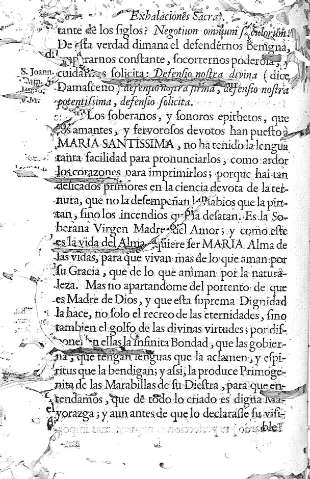 Exhalaciones Sacras,
tante de los siglos? Negotium omnium sæculorum.
De esta verdad dimana el defendernos benigna,
ampararnos constante, socorrernos poderosa, y
cuidarnos solicita: Defensio nostra divina (dice
S. Joann.
Damasceno) defensio nostra firma, defensio nostra
potentissima, defensio solicita.
Los soberanos, y sonoros epithetos, que
los amantes, y fervorosos devotos han puesto à
MARIA SANTISSIMA, no ha tenido la lengua
tanta facilidad para pronunciarlos, como ardor
los corazones para imprimirlos; porque hai tan
delicados primores en la ciencia devota de la ter-
nura, que no la desempeñan los labios que la pin-
tan, sino los incendios que la desatan. Es la So-
berana Virgen Madre del Amor; y como este
es la vida del Alma, quiere ser MARIA Alma de
las vidas, para que vivan mas de lo que aman por
su Gracia, que de lo que animan por la natura-
leza. Mas no apartandome del portento de que
es Madre de Dios, y que esta suprema Dignidad
la hace, no solo el recreo de las eternidades, sino
tambien el golfo de las divinas virtudes; por dis-
poner en ellas la infinita Bondad, que las gobier-
na, que tengan lenguas que la aclamen, y espi-
ritus que la bendigan; y assi, la produce Primoge-
nita de las Marabillas de su Diestra, para que en-
tendamos, que de todo lo criado es digna Ma-
yorazga; y aun antes de que lo declarasse su visi-
ble